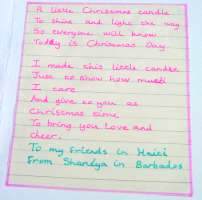 A little Christmas candle
To shine and light the way
So everyone will know
Today is Christmas Day.
I made this little candle
Just to show how much
I care
And give to you at
Christmas time
To bring you love and
cheer.
To my friends in Haiti
From Shandya in Barbados